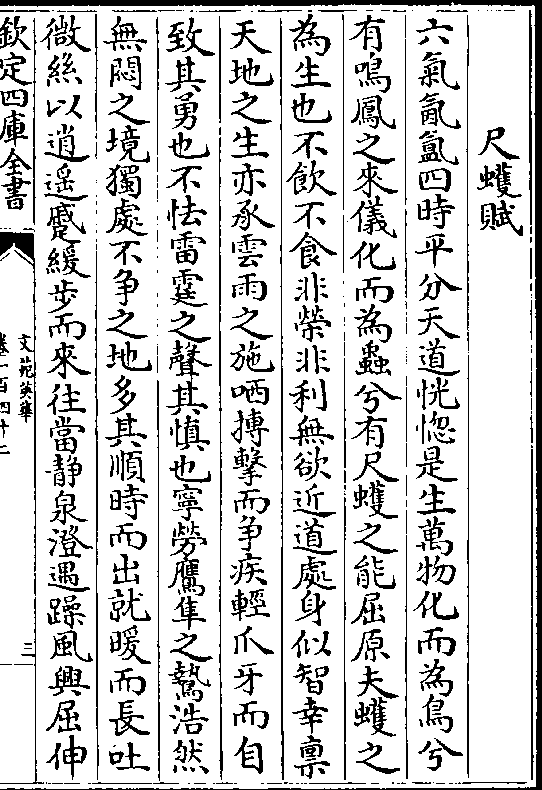 尺蠖賦
六氣氤氳四時平分天道恍惚是生萬物化而為鳥兮
有鳴鳳之來儀化而為蟲兮有尺蠖之能屈原夫蠖之
為生也不飲不食非榮非利無欲近道處身似智幸禀
天地之生亦承雲雨之施哂搏擊而争疾輕爪牙而自
致其勇也不怯雷霆之聲其慎也寧勞鷹隼之鷙浩然
無悶之境獨處不争之地多其順時而出就暖而長吐
微絲以逍遥蹙緩步而來往當静泉澄遇躁風興屈伸
欽定四庫全書
文苑英華
卷一百四十二
三